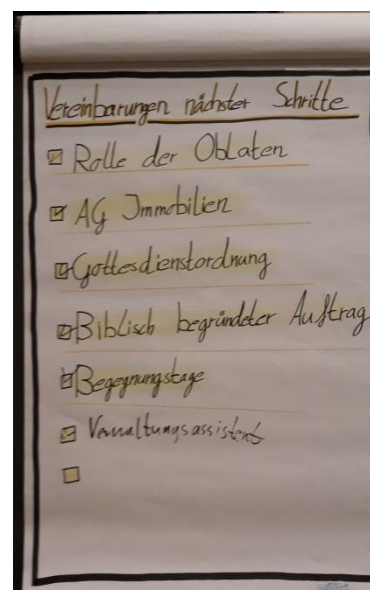 Vereinbarungen nächster Schritte
Rolle der Oblaten
AG Immobilien
Gottesdienstordnung
Biblisch begründeter Auftrag
Begegnungstage
Verwaltungsassistent